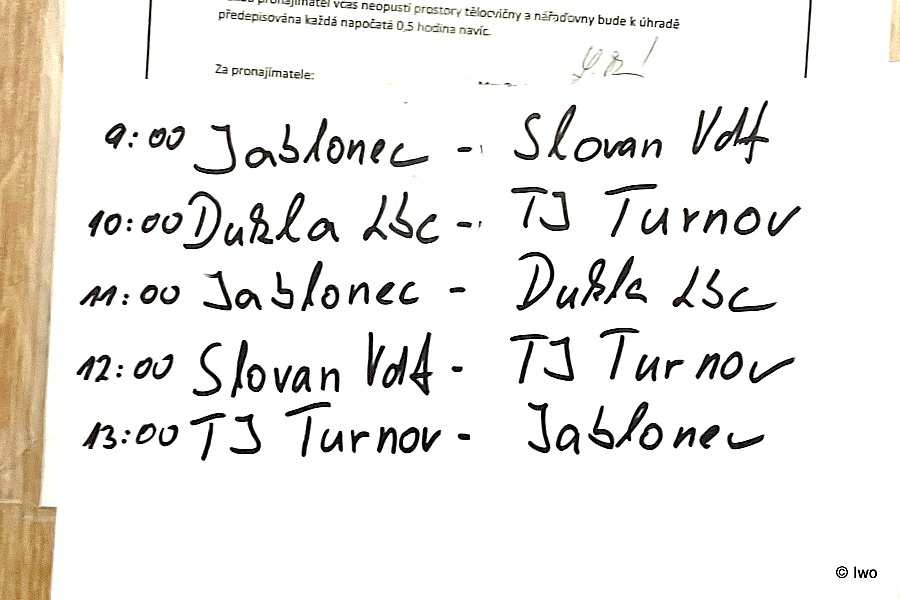 pronajímatel včas neopustí prostory tělocvičny a nářaďovny bude k úhradě
předepisována každá napočatá 0,5 hodina navíc.
Za pronajímatele:
9:00 Jablonec - Slovan Vdf
10:00 Dukla Lbc - TJ Turnov
11:00 Jablonec - Dukla Lbc
12:00 Slovan Vdf - TJ Turnov
13:00 TJ Turnov - Jablonec
© Iwo